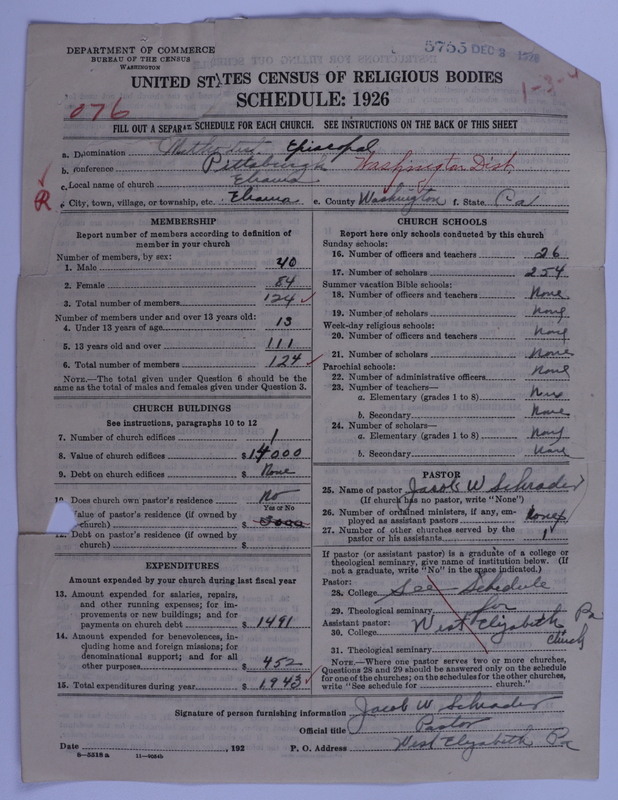 DEPARTMENT OF COMMERCE
BUREAU OF THE CENSUS
WASHINGTON
5755 DEC 3 1928
UNITED STATES CENSUS OF RELIGIOUS BODIES
SCHEDULE: 1926
076
1-3-
FILL OUT A SEPARATE SCHEDULE FOR EACH CHURCH. SEE INSTRUCTIONS ON THE BACK OF THIS SHEET
a. Denomination Methodist Episcopal
b. Conference Pittsburgh Washington Dist.
c. Local name of church Elrama
R
City, town, village, or township, etc. Elrama e. County Washington f. State Pa
MEMBERSHIP
Report number of members according to definition of
member in your church
Number of members, by sex:
1. Male 40
2. Female 84
3. Total number of members 124
Number of members under and over 13 years old:
4. Under 13 years of age 13
5. 13 years old and over 111
6. Total number of members 124
NOTE.—The total given under Question 6 should be
same as the total of males and females given under Question 3.
CHURCH BUILDINGS
See instructions, paragraphs 10 to 12
7. Number of church edifices 1
8. Value of church edifices $14000
9. Debt on church edifices $ None
10. Does church own pastor's residence No
Yes or No
Value of pastor's residence (if owned by
church) $ 3000
12. Debt on pastor's residence (if owned by
church) $
EXPENDITURES
Amount expended by your church during last fiscal year
13. Amount expended for salaries, repairs,
and other running expenses; for im-
provements or new buildings; and for
payments on church debt $ 1491
14. Amount expended for benevolences, in-
cluding home and foreign missions; for
denominational support; and for all
other purposes $ 452
15. Total expenditures during year $ 1943
CHURCH SCHOOLS
Report here only schools conducted by this church
Sunday schools:
16. Number of officers and teachers 26
17. Number of scholars 254
Summer vacation Bible schools:
18. Number of officers and teachers None
19. Number of scholars None
Week-day religious schools:
20. Number of officers and teachers None
21. Number of scholars None
Parochial schools:
22. Number of administrative officers None
23. Number of teachers—
a. Elementary (grades 1 to 8) None
b. Secondary None
24. Number of scholars—
a. Elementary (grades 1 to 8) None
b. Secondary None
PASTOR
25. Name of pastor Jacob W Schrader
(If church has no pastor, write "None")
26. Number of ordained ministers, if any, em-
ployed as assistant pastors None
27. Number of other churches served by the
pastor or his assistants 1
If pastor (or assistant pastor) is a graduate of a college or
theological seminary, give name of institution below. (If
not a graduate, write "No" in the space indicated.)
Pastor:
28. College See Schedule
29. Theological seminary for
Assistant pastor: West Elizabeth Pa
30. College church
31. Theological seminary
NOTE.—Where one pastor serves two or more churches,
Questions 28 and 29 should be answered only on the schedule
for one of the churches; on the schedules for the other churches,
write "See schedule for church."
Signature of person furnishing information Jacob W Schrader
Official title Pastor
Date , 192 P. O. Address West Elizabeth, Pa
8—5518 a 11—4064b